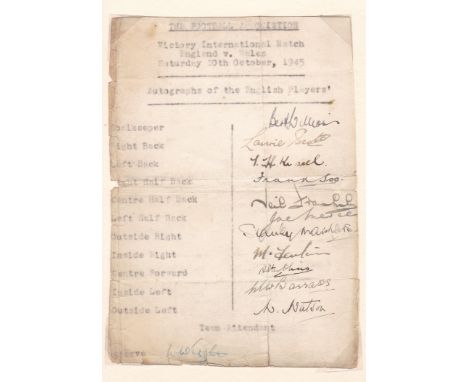 THE FOOTBALL ASSOCIATION
Victory International Match
England v. Wales
Saturday 20th October, 1945
Autographs of the English Players'
Goalkeeper Bert Williams
Right Back Laurie Scott
Left Back
Right Half Back Frank Soo
Centre Half Back Neil Franklin
Left Half Back Joe Mercer
Outside Right Stanley Matthews
Inside Right M. Fenton
Centre Forward
Inside Left M W Barrass
Outside Left W. Watson
Team Attendant
Reserve